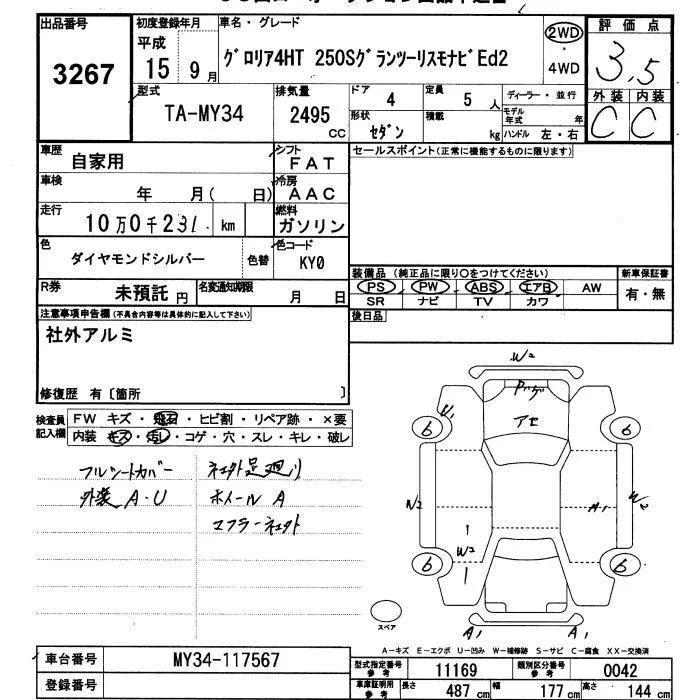 出品番号
3267
初度登録年月
平成
15 9 月
車名・グレード
グロリア4HT 250SグランツーリスモナビEd2
2WD
・
4WD
評価点
3.5
外装 内装
C C
型式
TA-MY34
排気量
2495
CC
ドア
4
定員
5 人
ディーラー・並行
形状
セダン
積載
kg
モデル年式 年
ハンドル 左・右
車歴
自家用
シフト
FAT
車検
年 月( 日)
冷房
AAC
走行
10万0千231 km
燃料
ガソリン
色
ダイヤモンドシルバー
色替
色コード
KY0
R券
未預託 円
名変通知期限
月 日
セールスポイント(正常に機能するものに限ります)
装備品(純正品に限り○をつけてください)
新車保証書
PS PW ABS エアB AW
有・無
SR ナビ TV カワ
後日品
注意事項申告欄(不具合内容等は具体的に記入して下さい)
社外アルミ
修復歴 有〔箇所 〕
検査員
記入欄
FW キズ・飛石・ヒビ割・リペア跡・×要
内装 キズ・汚レ・コゲ・穴・スレ・キレ・破レ
フルシートカバー
外装 A・U
社外足廻り
ホイールA
マフラー社外
W2
U1
アセ
6
6
W2
A1
W2
W2
6
6
スペア
A1
A1
A-キズ E-エクボ U-凹み W-補修跡 S-サビ C-腐食 XX-交換済
車台番号
MY34-117567
登録番号
型式指定番号
参考
11169
類別区分番号
参考
0042
車庫証明用
参考
長さ
487 cm
幅
177 cm
高さ
144 cm